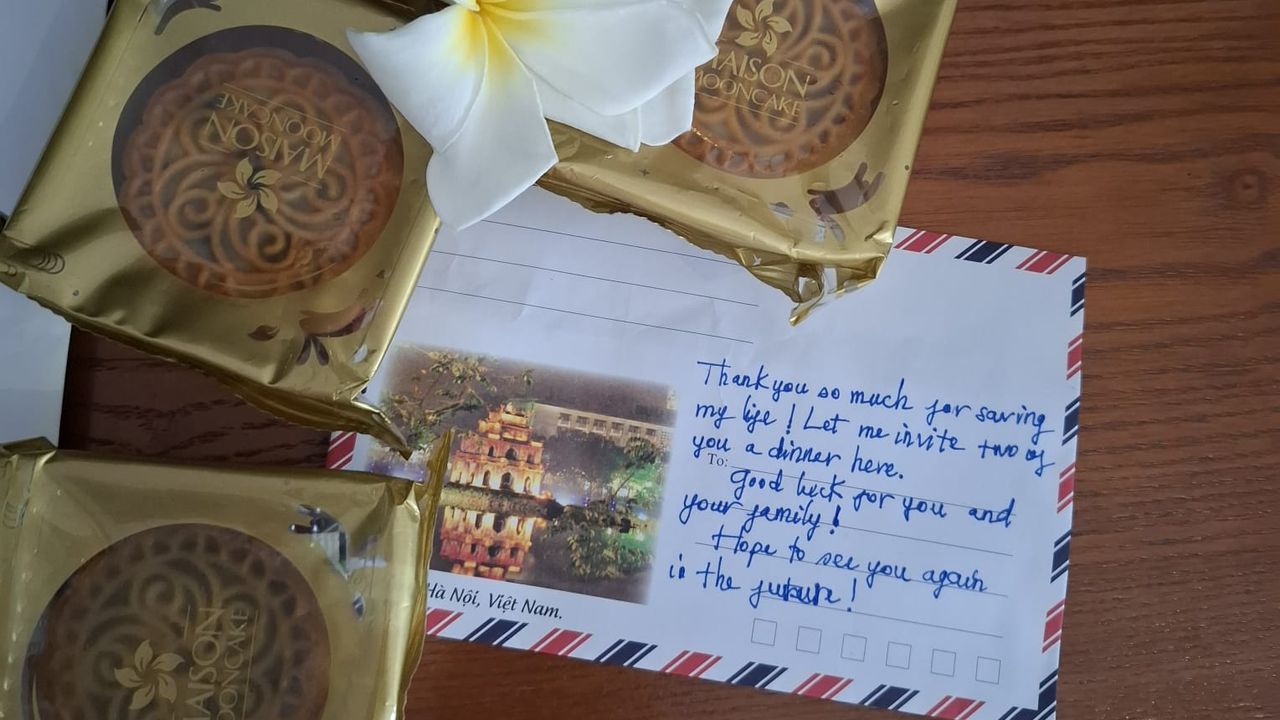 MAISON
MOONCAKE
MAISON
MOONCAKE
Thank you so much for saving
my life! Let me invite two of
you a dinner here.
To:
Good luck for you and
your family!
Hope to see you again
in the future!
Hà Nội, Việt Nam.
MAISON
MOONCAKE